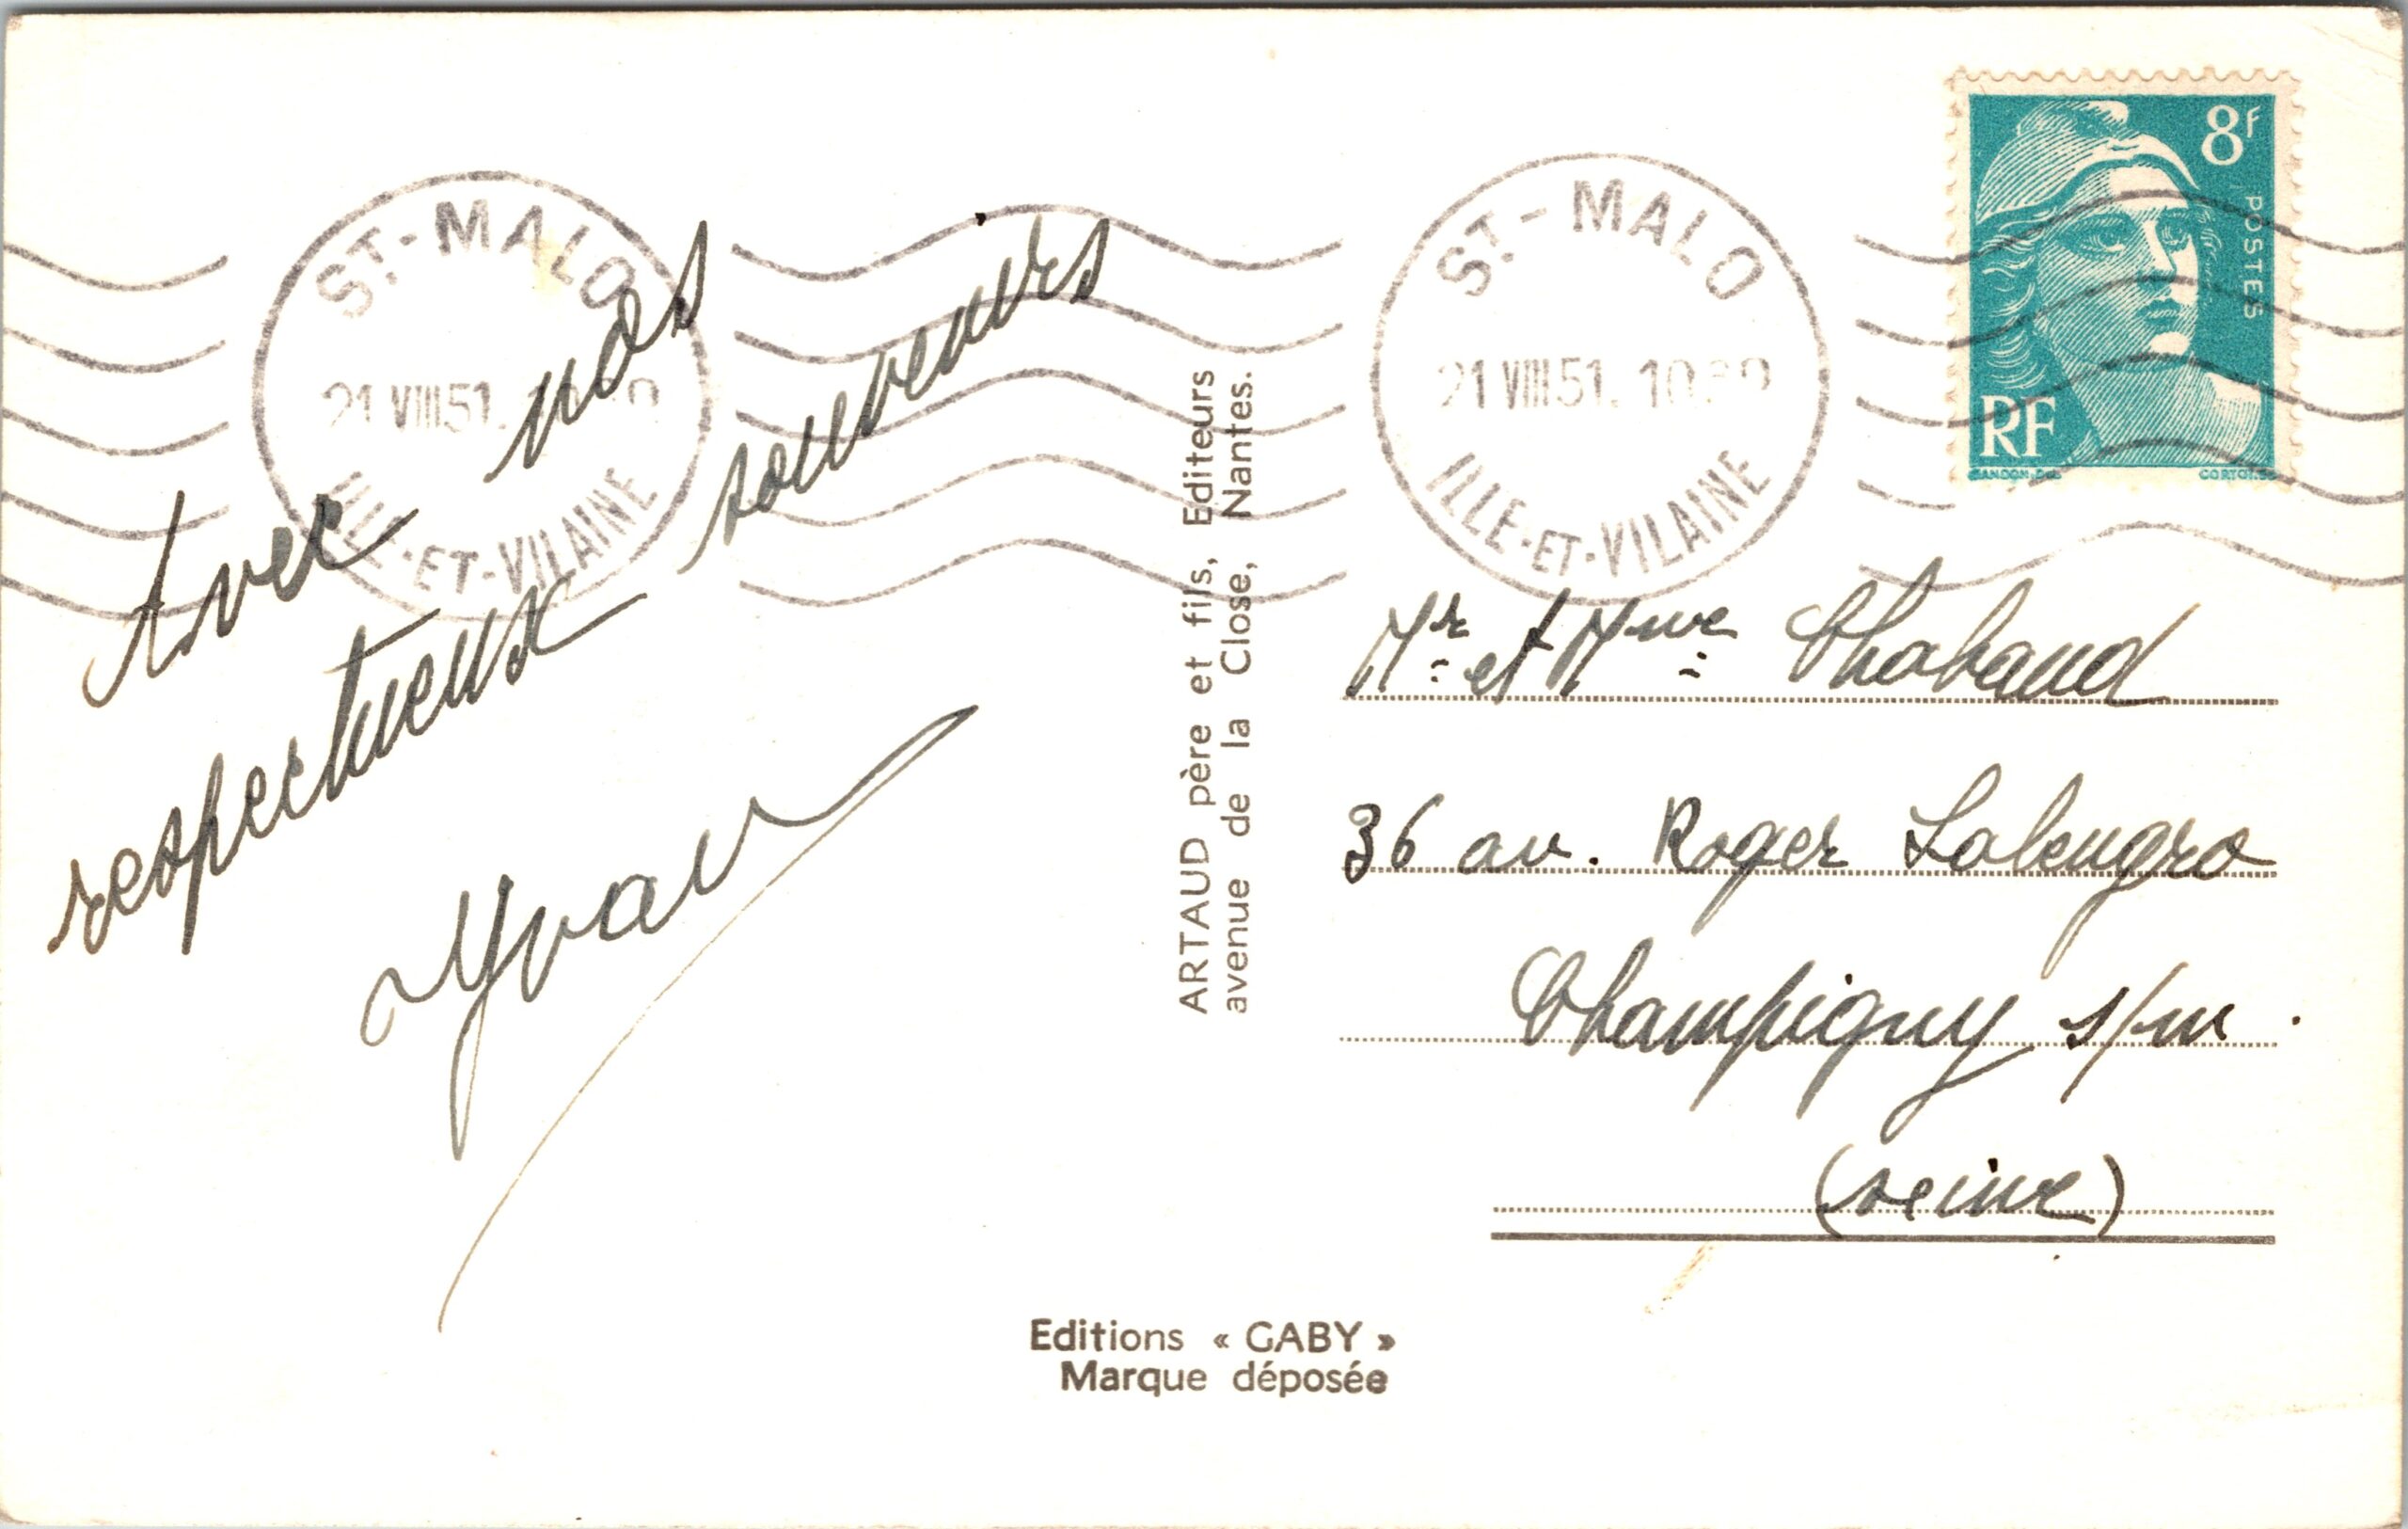 ST.-MALO
21 VIII 51.
ILLE-ET-VILAINE
ST.-MALO
21 VIII 51. 10
ILLE-ET-VILAINE
8F
POSTES
RF
GANDON.DEL CORTOT.SC
Avec nos
respectueux souvenirs
Yvan
ARTAUD père et fils, Editeurs
avenue de la Close, Nantes.
Mr et Mme Chabaud
36 av. Roger Salengro
Champigny s/m.
(seine)
Editions « GABY »
Marque déposée